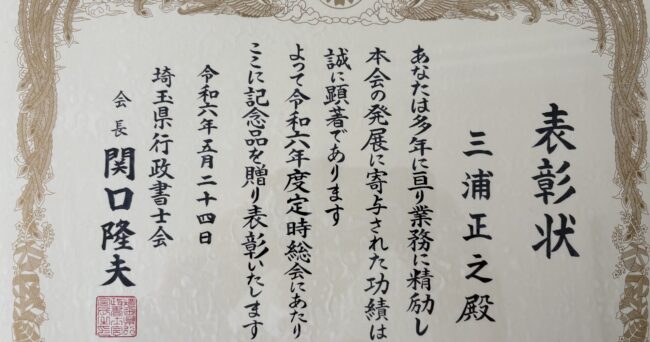 表彰状
三浦正之殿
あなたは多年に亘り業務に精励し
本会の発展に寄与された功績は
誠に顕著であります
よって令和六年度定時総会にあたり
ここに記念品を贈り表彰いたします
令和六年五月二十四日
埼玉県行政書士会
会長 関口隆夫